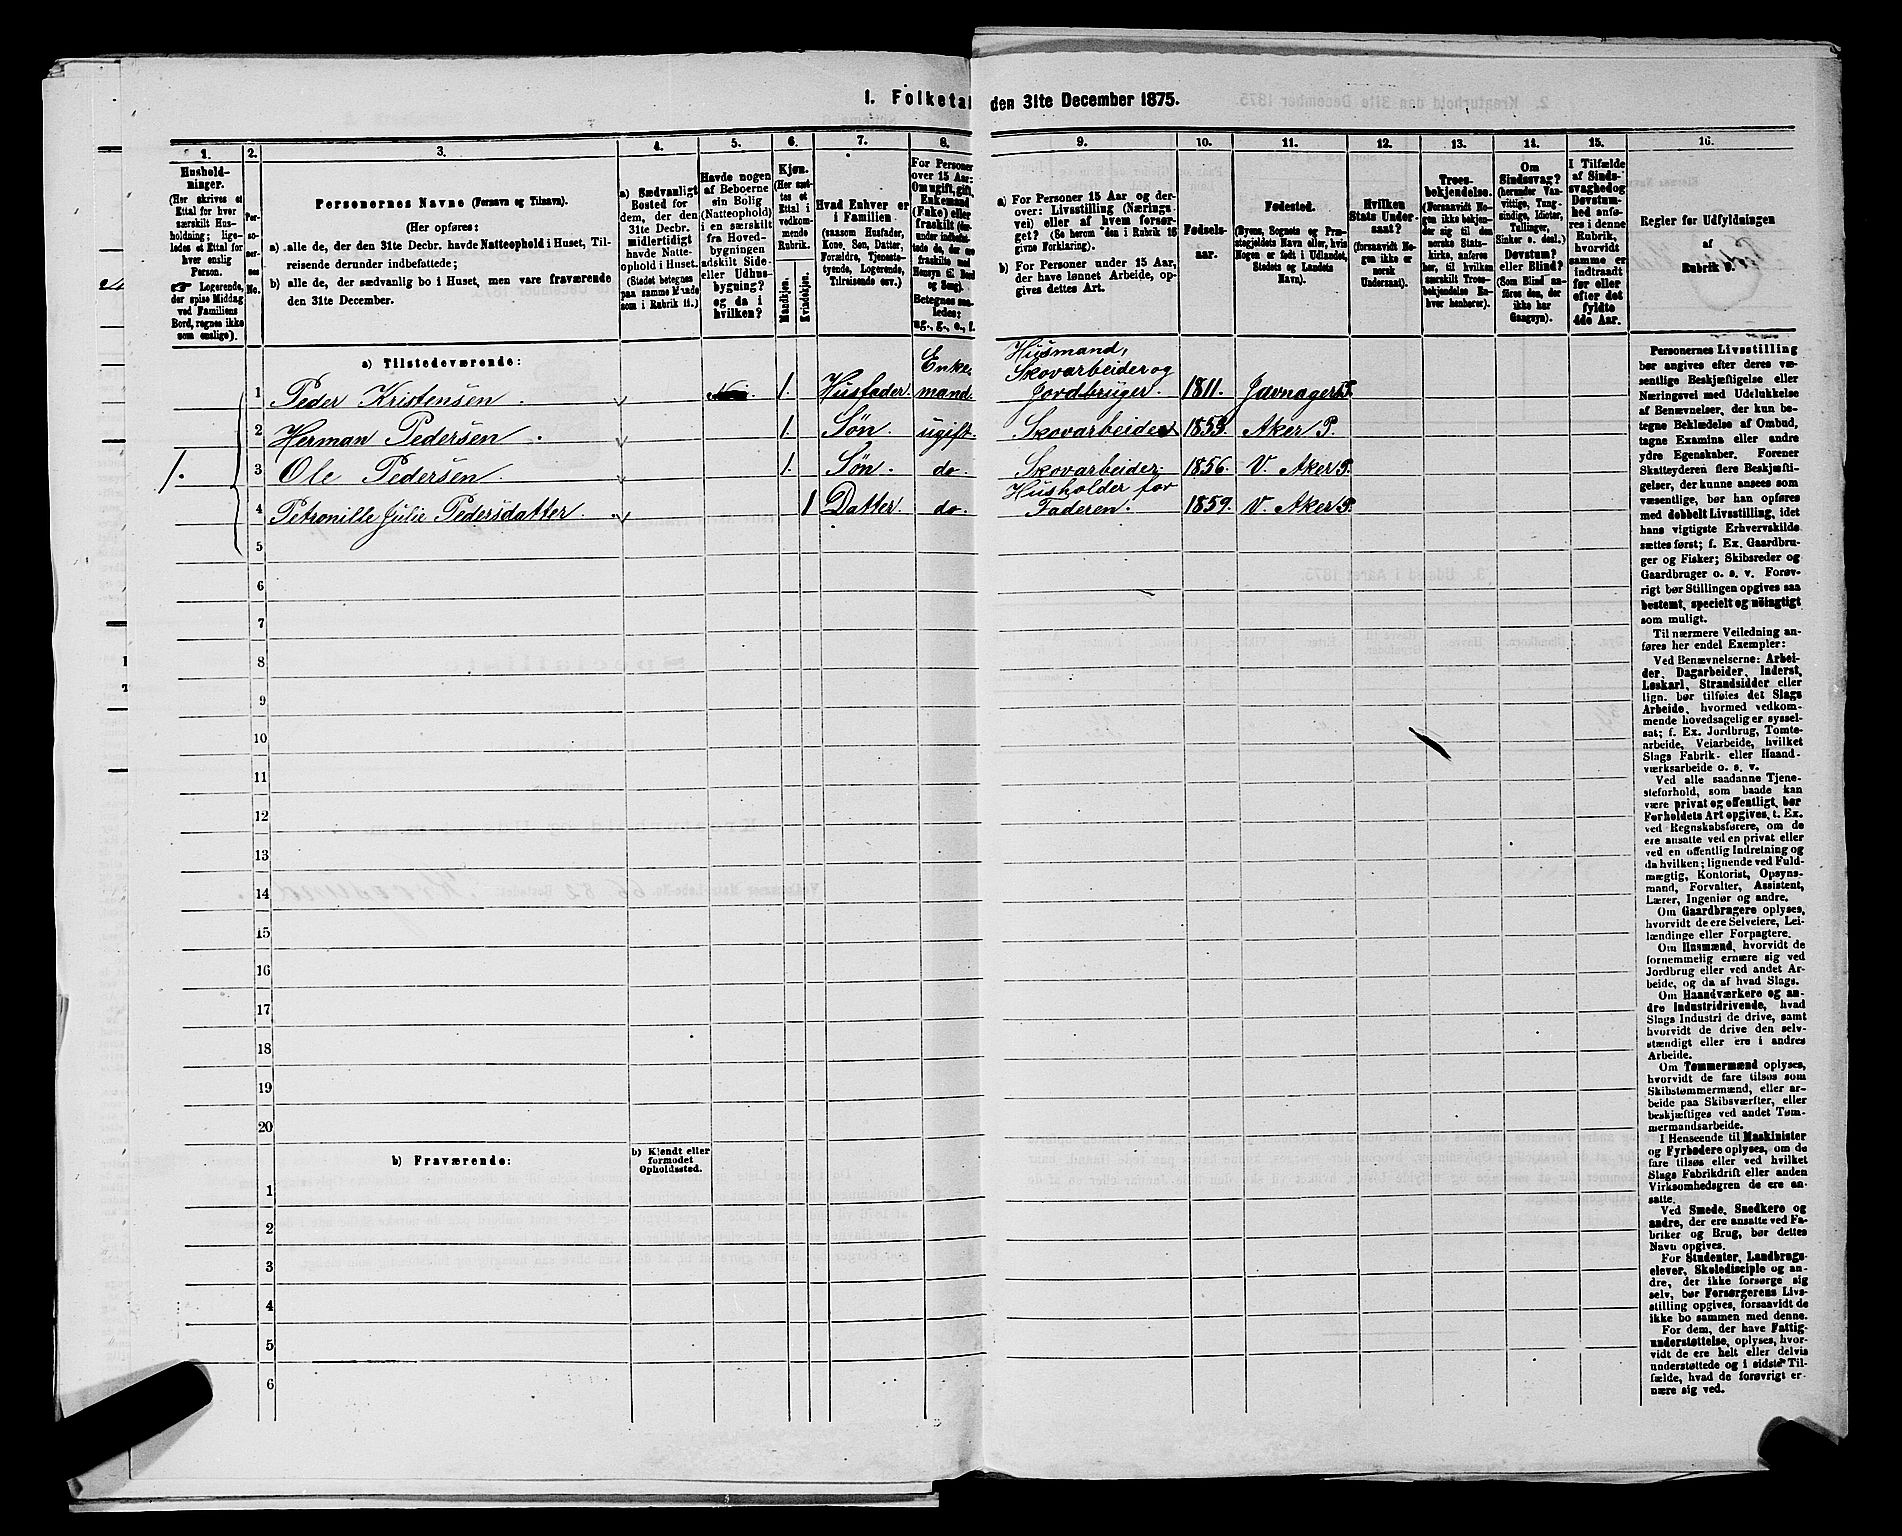 1. Folketal den 31te December 1875.
1. 2. 3. 4. 5. 6. 7. 8. 9. 10. 11. 12. 13. 14. 15. 16.
Hushold-
ninger.
(Her skrives et
Ettal for hver
særskilt Hus-
holdning; lige-
ledes et Ettal for
hver enslig
Person.
☛ Logerende,
der spise Middag
ved Familiens
Bord, regnes ikke
som enslige).
Per-
so-
ner-
nes
No.
Personernes Navne (Fornavn og Tilnavn).
(Her opføres:
a) alle de, der den 31te Decbr. havde Natteophold i Huset, Til-
reisende derunder indbefattede;
b) alle de, der sædvanlig bo i Huset, men vare fraværende
den 31te December.
a) Sædvanligt
Bosted for
dem, der den
31te Decbr.
midlertidigt
havde Natte-
ophold i Huset.
(Stedet betegnes
paa samme Maade
som i Rubrik 11.)
Havde nogen
af Beboerne
sin Bolig
(Natteophold)
i en særskilt
fra Hoved-
bygningen
adskilt Side-
eller Udhus-
bygning?
og da i
hvilken?
Kjøn.
(Her sæt-
tes et
Ettal i
vedkom-
mende
Rubrik.
Mandkjøn.
Kvindekjøn.
Hvad Enhver er
i Familien
(saasom Husfader,
Kone, Søn, Datter,
Forældre, Tjeneste-
tyende, Logerende,
Tilreisende osv.)
For Personer
over 15 Aar:
Om ugift, gift,
Enkemand
(Enke) eller
fraskilt
Betegnes saa-
ledes:
ug., g., e., f.
a) For Personer 15 Aar og der-
over: Livsstilling (Nærings-
vei) eller af hvem forsør-
get? (Se herom den i Rubrik 16
givne Forklaring).
b) For Personer under 15 Aar,
der have lønnet Arbeide, op-
gives dettes Art.
Fødsels-
aar.
Fødested.
(Byens, Sognets og Præ-
stegjeldets Navn eller, hvis
Nogen er født i Udlandet,
Stedets og Landets
Navn).
Hvilken
Stats Under-
saat?
(forsaavidt No-
gen ikke er
norsk
Undersaat).
Troes-
bekjendelse.
(Forsaavidt No-
gen ikke bekjen-
der sig til den
norske Stats-
kirke, anføres
her, til hvilken
særskilt Troes-
bekjendelse En-
hver henhører).
Om
Sindssvag?
(herunder Van-
vittige, Tung-
sindige, Idioter,
Tullinger,
Sinker o. desl.)
Døvstum?
eller Blind?
(Som Blind an-
føres den, der
ikke har
Gangsyn).
I Tilfælde
af Sinds-
svaghed og
Døvstum-
hed anfø-
res i denne
Rubrik,
hvorvidt
samme er
indtraadt
før eller
efter det
fyldte
4de Aar.
Regler for Udfyldningen
af
Rubrik 9.
a) Tilstedeværende:
1. 1 Peder Kristensen 1. Husfader. Enke-
mand. Husmand,
Skovarbeider og
Jordbruger. 1811. Jævnager P.
2 Herman Pedersen 1. Søn. ugift. Skovarbeider 1853. Aker P.
3 Ole Pedersen. 1. Søn. do. Skovarbeider. 1856. V. Aker P.
4 Petronille Julie Pedersdatter. 1 Datter. do. Husholder for
Faderen. 1859. V. Aker P.
5
6
7
8
9
10
11
12
13
14
15
16
17
18
19
20
b) Fraværende:
b) Kjendt eller
formodet
Opholdssted.
1
2
3
4
5
6
Personernes Livsstilling
bør angives efter deres væ-
sentlige Beskjæftigelse eller
Næringsvei med Udelukkelse
af Benævnelser, der kun be-
tegne Beklædelse af Ombud,
tagne Examina eller andre
ydre Egenskaber. Forener
Skatteyderen flere Beskjæfti-
gelser, der kunne ansees som
væsentlige, bør han opføres
med dobbelt Livsstilling, idet
hans vigtigste Erhvervskilde
sættes først; f. Ex. Gaardbru-
ger og Fisker; Skibsreder og
Gaardbruger o. s. v. Forøv-
rigt bør Stillingen opgives saa
bestemt, specielt og nöiagtigt
som muligt.
Til nærmere Veiledning an-
føres her endel Exempler:
Ved Benævnelserne: Arbei-
der, Dagarbeider, Inderst,
Løskarl, Strandsidder eller
lign. bør tilføies det Slags
Arbeide, hvormed vedkom-
mende hovedsagelig er syssel-
sat; f. Ex. Jordbrug, Tomte-
arbeide, Veiarbeide, hvilket
Slags Fabrik- eller Haand-
værksarbeide o. s. v.
Ved alle saadanne Tjene-
steforhold, som baade kan
være privat og offentligt, bør
Forholdets Art opgives, t. Ex.
ved Regnskabsførere, om de
ere ansatte ved en privat eller
ved en offentlig Indretning og
da hvilken; lignende ved Fuld-
mægtig, Kontorist, Opsyns-
mand, Forvalter, Assistent,
Lærer, Ingeniør og andre.
Om Gaardbrugere oplyses,
hvorvidt de ere Selveiere, Lei-
lændinge eller Forpagtere.
Om Husmænd, hvorvidt de
fornemmelig ernære sig ved
Jordbrug eller ved andet Ar-
beide, og da af hvad Slags.
Om Haandværkere og an-
dre Industridrivende, hvad
Slags Industri de drive, samt
hvorvidt de drive den selv-
stændigt eller ere i andres
Arbeide.
Om Tømmermænd oplyses,
hvorvidt de fare tilsøs som
Skibstømmermænd, eller ar-
beide paa Skibsværfter, eller
beskjæftiges ved andet Tøm-
mermandsarbeide.
I Henseende til Maskinister
og Fyrbødere oplyses, om de
fare tilsøs eller ved hvilket
Slags Fabrikdrift eller anden
Virksomhedsgren de ere an-
satte.
Ved Smede, Snedkere og
andre, der ere ansatte ved Fa-
briker og Brug, bør dettes
Navn opgives.
For Studenter, Landbrugs-
elever, Skoledisciple og an-
dre, der ikke forsørge sig
selv, bør Forsørgerens Livs-
stilling opgives, forsaavidt de
ikke bo sammen med denne.
For dem, der have Fattig-
understøttelse, oplyses, hvor-
vidt de ere helt eller delvis
understøttede og i sidste Til-
fælde, hvad de forøvrigt er-
nære sig ved.